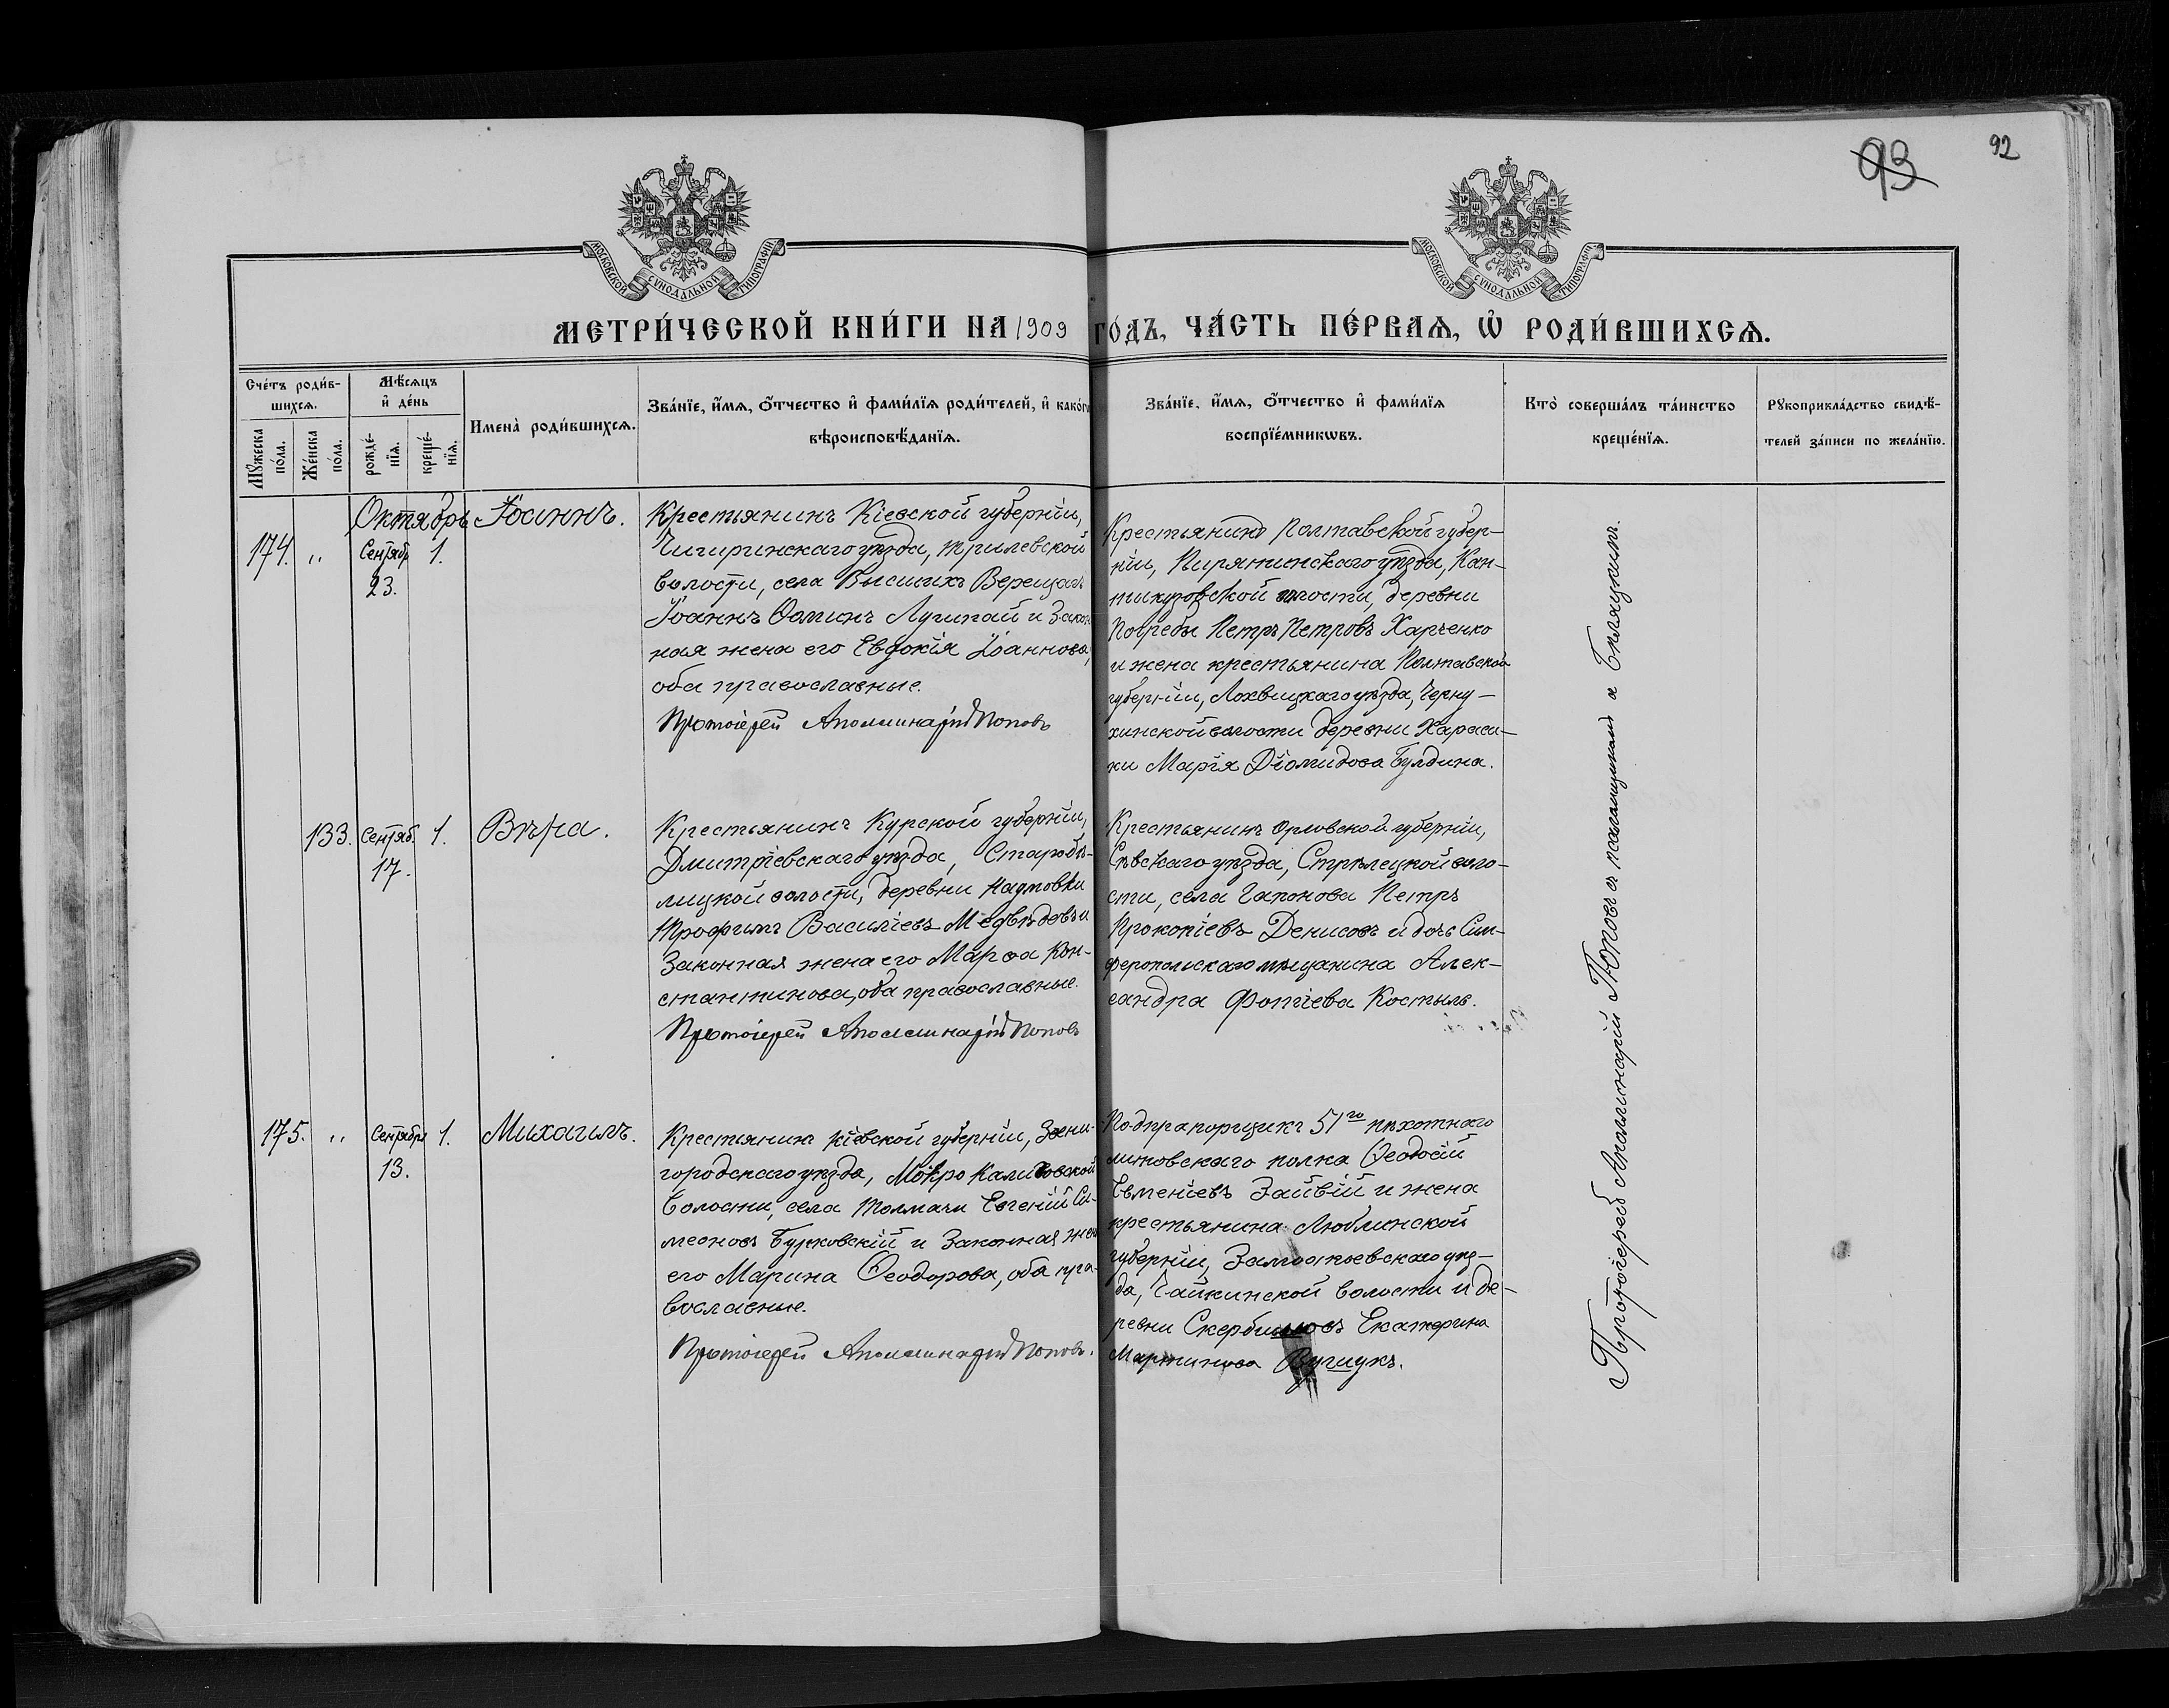 93
92
МОСКОВСКОЙ СѴНОДАЛЬНОЙ ТИПОГРАФІИ
МОСКОВСКОЙ СѴНОДАЛЬНОЙ ТИПОГРАФІИ
МЕТРИ́ЧЕСКОЙ КНИ́ГИ НА 1909 ГО́ДЪ, ЧА́СТЬ ПЕ́РВАѦ, Ѡ҆ РОДИ́ВШИХСѦ.
Сче́тъ роди́в-
шихсѧ.
Мꙋ́жеска
по́ла.
Же́нска
по́ла.
Мѣ́сѧцъ
и҆ де́нь
рожде́-
нїѧ.
креще́-
нїѧ.
Имена̀ роди́вшихсѧ.
Зва́нїе, и҆́мѧ, ѻ҆́тчество и҆ фами́лїѧ роди́телей, и҆ како́гѡ
вѣроисповѣ́данїѧ.
Зва́нїе, и҆́мѧ, ѻ҆́тчество и҆ фами́лїѧ
воспрїе́мникѡвъ.
Кто̀ соверша́лъ та́инство
креще́нїѧ.
Рꙋкоприкла́дство свидѣ́-
телей за́писи по жела́нїю.
Октябрь
174. „ Сентябр 23. 1. Іоаннъ.
Крестьянинъ Кіевской губерніи,
Чигиринскаго уѣзда, Трилевской
волости, села Высшихъ Верещакъ
Іоаннъ Ѳоминъ Лугипай и закон
ная жена его Евдокія Іоаннова,
оба православные.
Протоіерей Аполлинарій Поповъ
Крестьянинъ Полтавской губер-
ніи, Пирятинскаго уѣзда, Кан-
волости, деревни
Погребы Петръ Петровъ Харченко
и жена крестьянина Полтавской
губерніи, Лохвицкаго уѣзда, Черну-
хинской волости деревни Хараси-
ки Марія Діомидова Булдина.
133. Сентяб. 17. 1. Вѣра.
Крестьянинъ Курской губерніи,
Дмитріевскаго уѣзда, Старобѣ-
лицкой волости, деревни
Трофимъ Василіевъ Медвѣдевъ и
законная жена его Марѳа Кон-
стантинова, оба православные.
Протоіерей Аполлинарій Поповъ
Крестьянинъ Орловской губерніи,
Сѣвскаго уѣзда, Стрѣлецкой воло-
сти, села Гапонова Петръ
Прокопіевъ Денисовъ и дочь Сим-
феропольскаго мѣщанина Алек-
сандра Фотіева Костыль.
175. „ Сентября 13. 1. Михаилъ.
Крестьянинъ Кіевской губерніи, Звени-
городскаго уѣзда, Мокро Калигорской
волости, села Толмачи Евгеній Си-
меоновъ Бурковскій и законная жена
его Марина Ѳеодорова, оба пра-
вославные.
Протоіерей Аполлинарій Поповъ.
Подпрапорщикъ 51го пѣхотнаго
Литовскаго полка Ѳеодосій
Евменіевъ Зайвій и жена
крестьянина Люблинской
губерніи, Замостьевскаго уѣз-
да, волости и де-
ревни Екатерина
Мартинова
Протоіерей Аполлинарій Поповъ съ псаломщикомъ